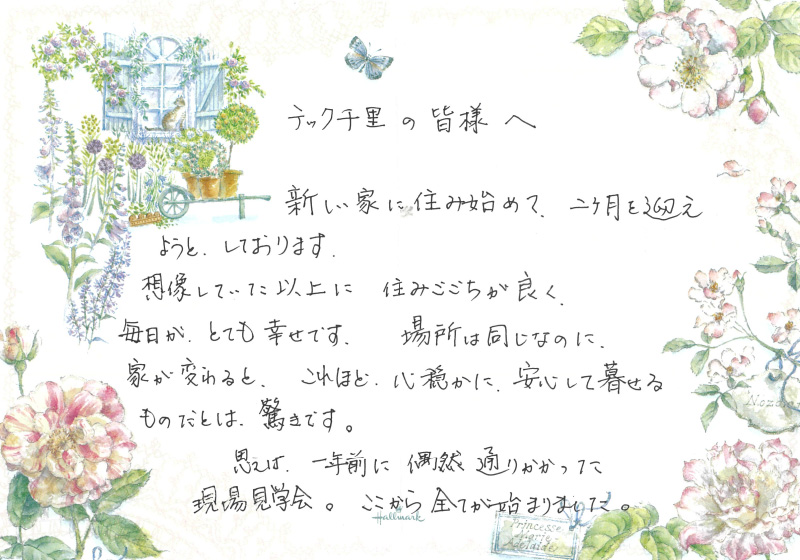 テック千里の皆様へ
新しい家に住み始めて、二ケ月を迎え
ようと、しております。
想像していた以上に 住みごこちが良く、
毎日が、とても幸せです。 場所は同じなのに、
家が変わると、これほど、心穏かに、安心して暮せる
ものだとは、驚きです。
思えば、一年前に 偶然 通りかかった
現場見学会。ここから全てが始まりました。
Hallmark
Princesse
Adelaide